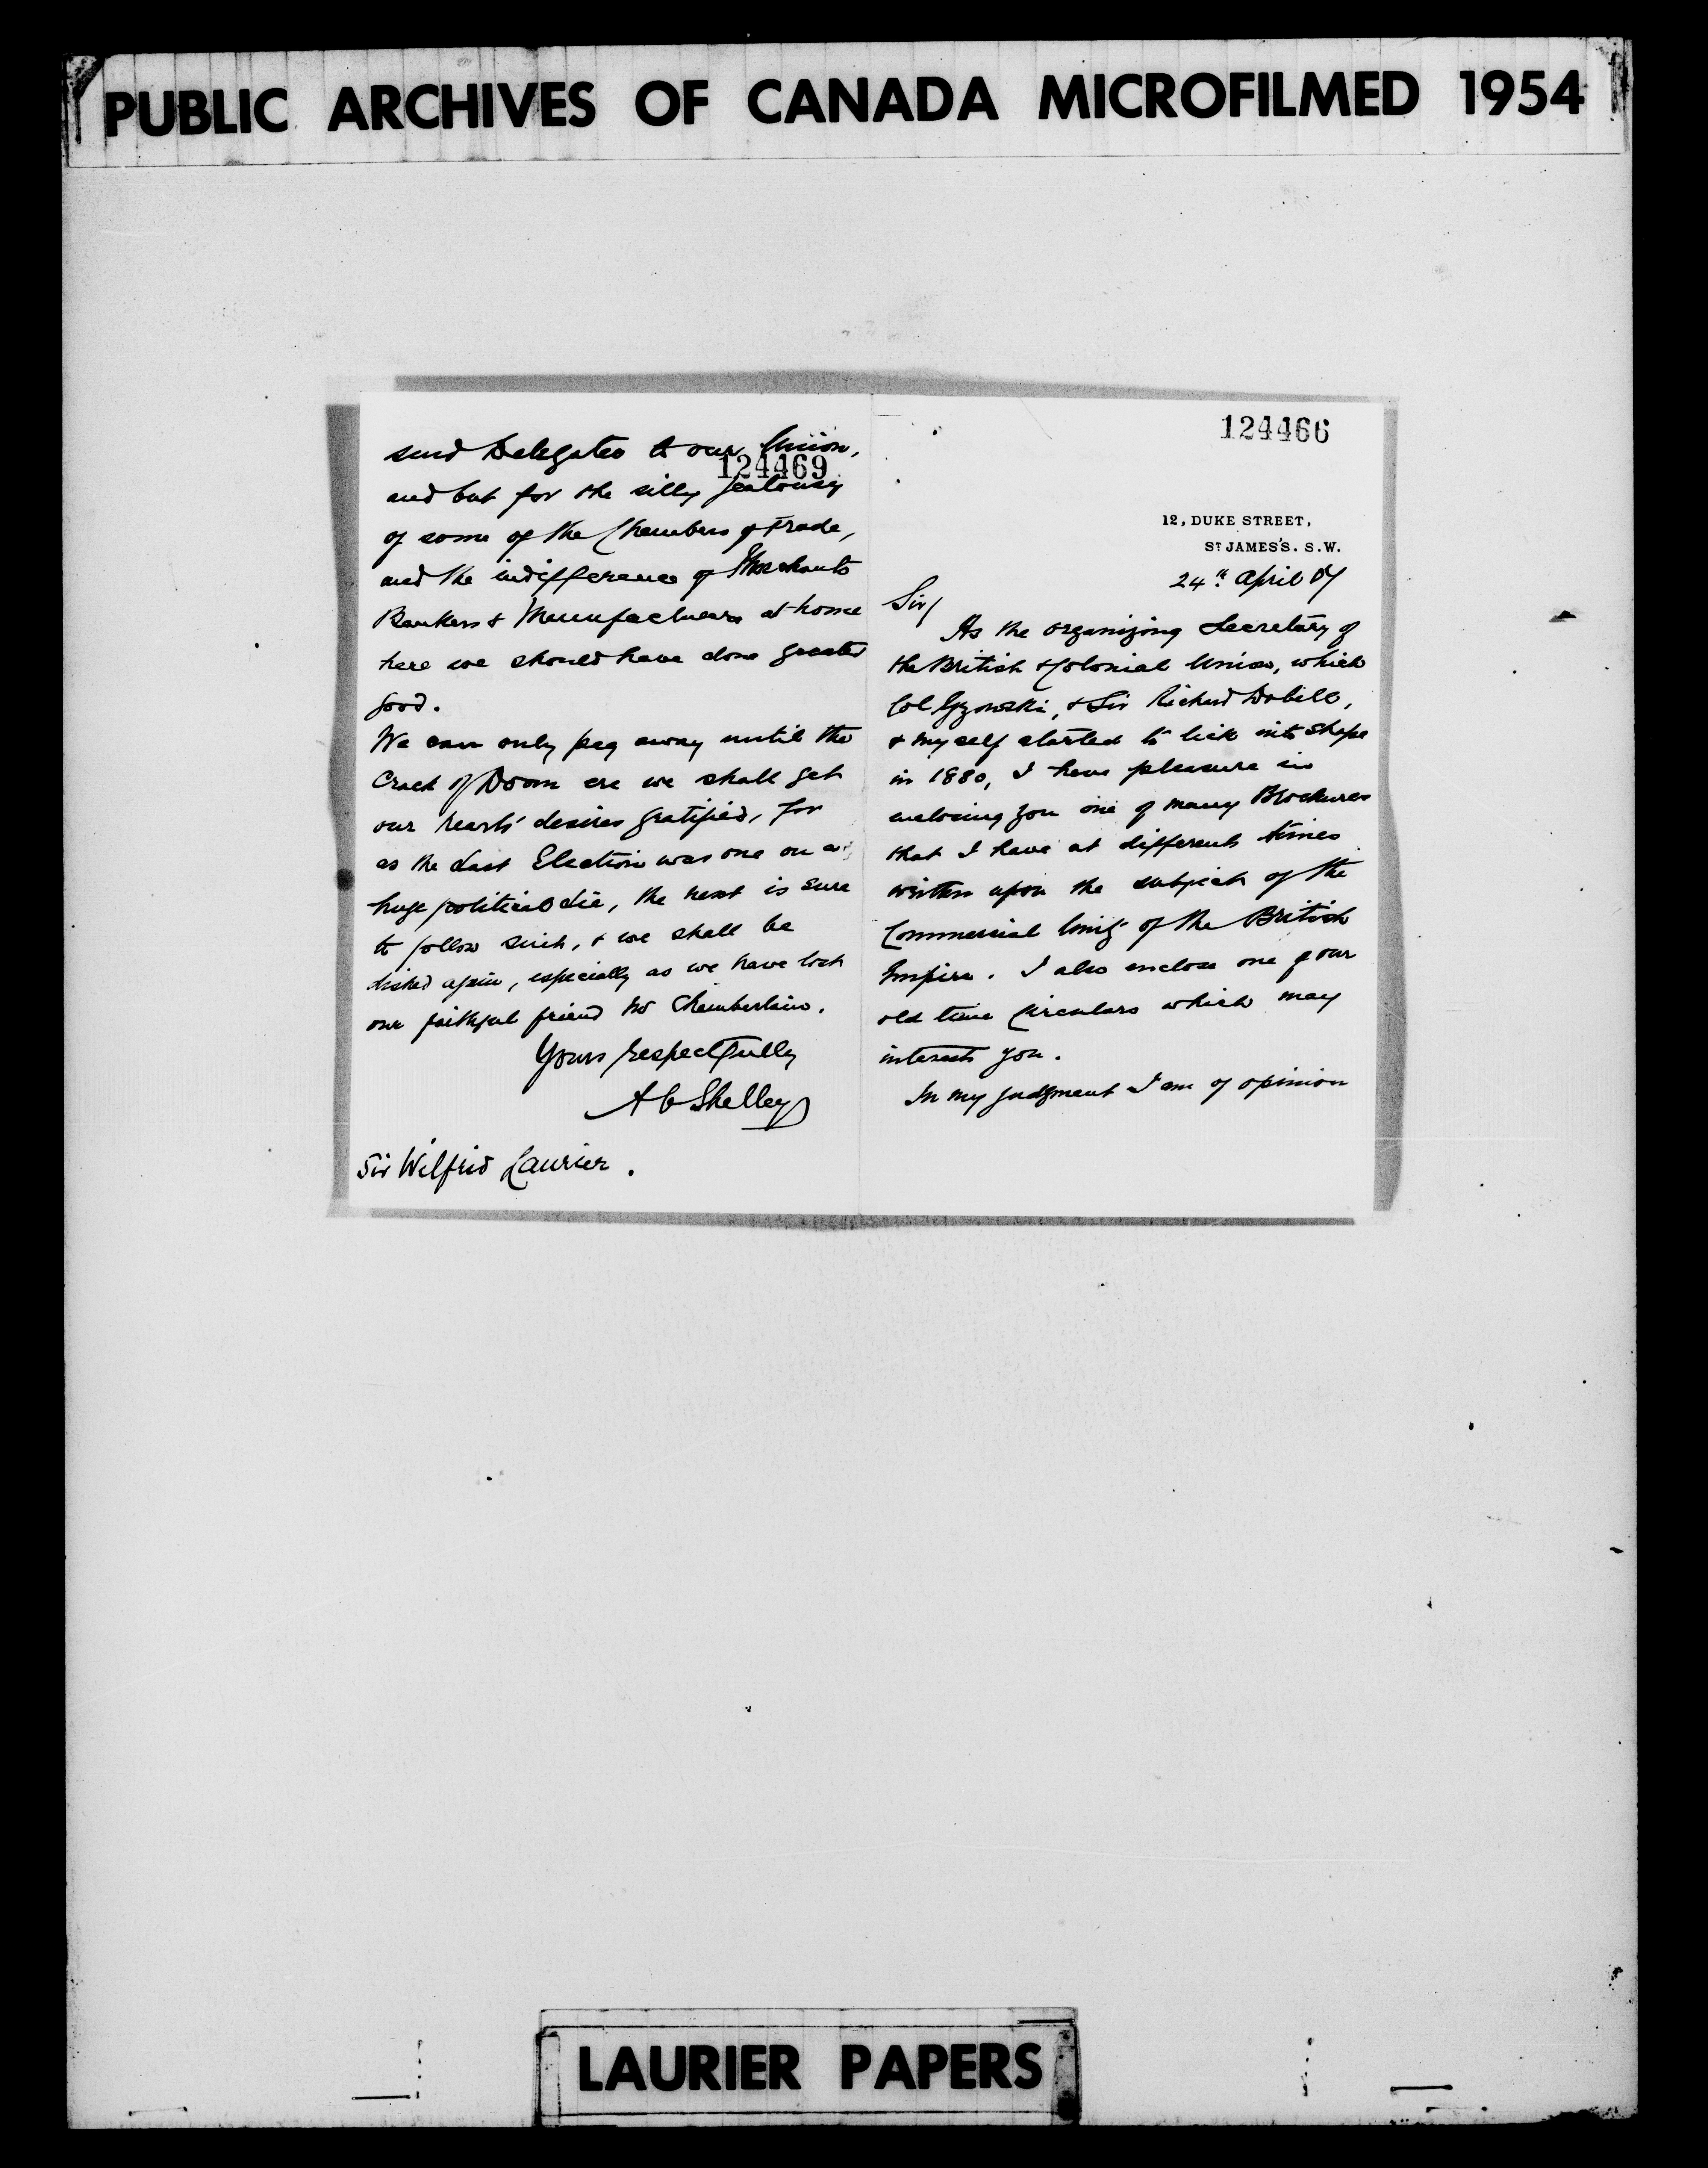 PUBLIC ARCHIVES OF CANADA MICROFILMED 1954
send Delegates to our Union,
124469
and but for the silly jealousy
of some of the Chambers of Trade,
and the indifference of Merchants
Bankers & Manufacturers at home
here we should have done greater
good.
We can only peg away until the
Crack of Doom ere we shall get
our hearts' desires gratified, for
as the Last Election was one on a
huge political lie, the next is sure
to follow suit, & we shall be
dished again, especially as we have lost
our faithful friend Mr Chamberlain.
Yours respectfully
A C Shelley
Sir Wilfrid Laurier.
124466
12, DUKE STREET,
ST JAMES'S. S.W.
24th April 07
Sir/
As the organizing Secretary of
the British & Colonial Union, which
Col Gzowski, & Sir Richard Dobell,
& myself started to lick into shape
in 1880, I have pleasure in
enclosing you one of many Brochures
that I have at different times
written upon the subject of the
Commercial Unity of the British
Empire. I also enclose one of our
old time Circulars which may
interest you.
In my judgment I am of opinion
LAURIER PAPERS